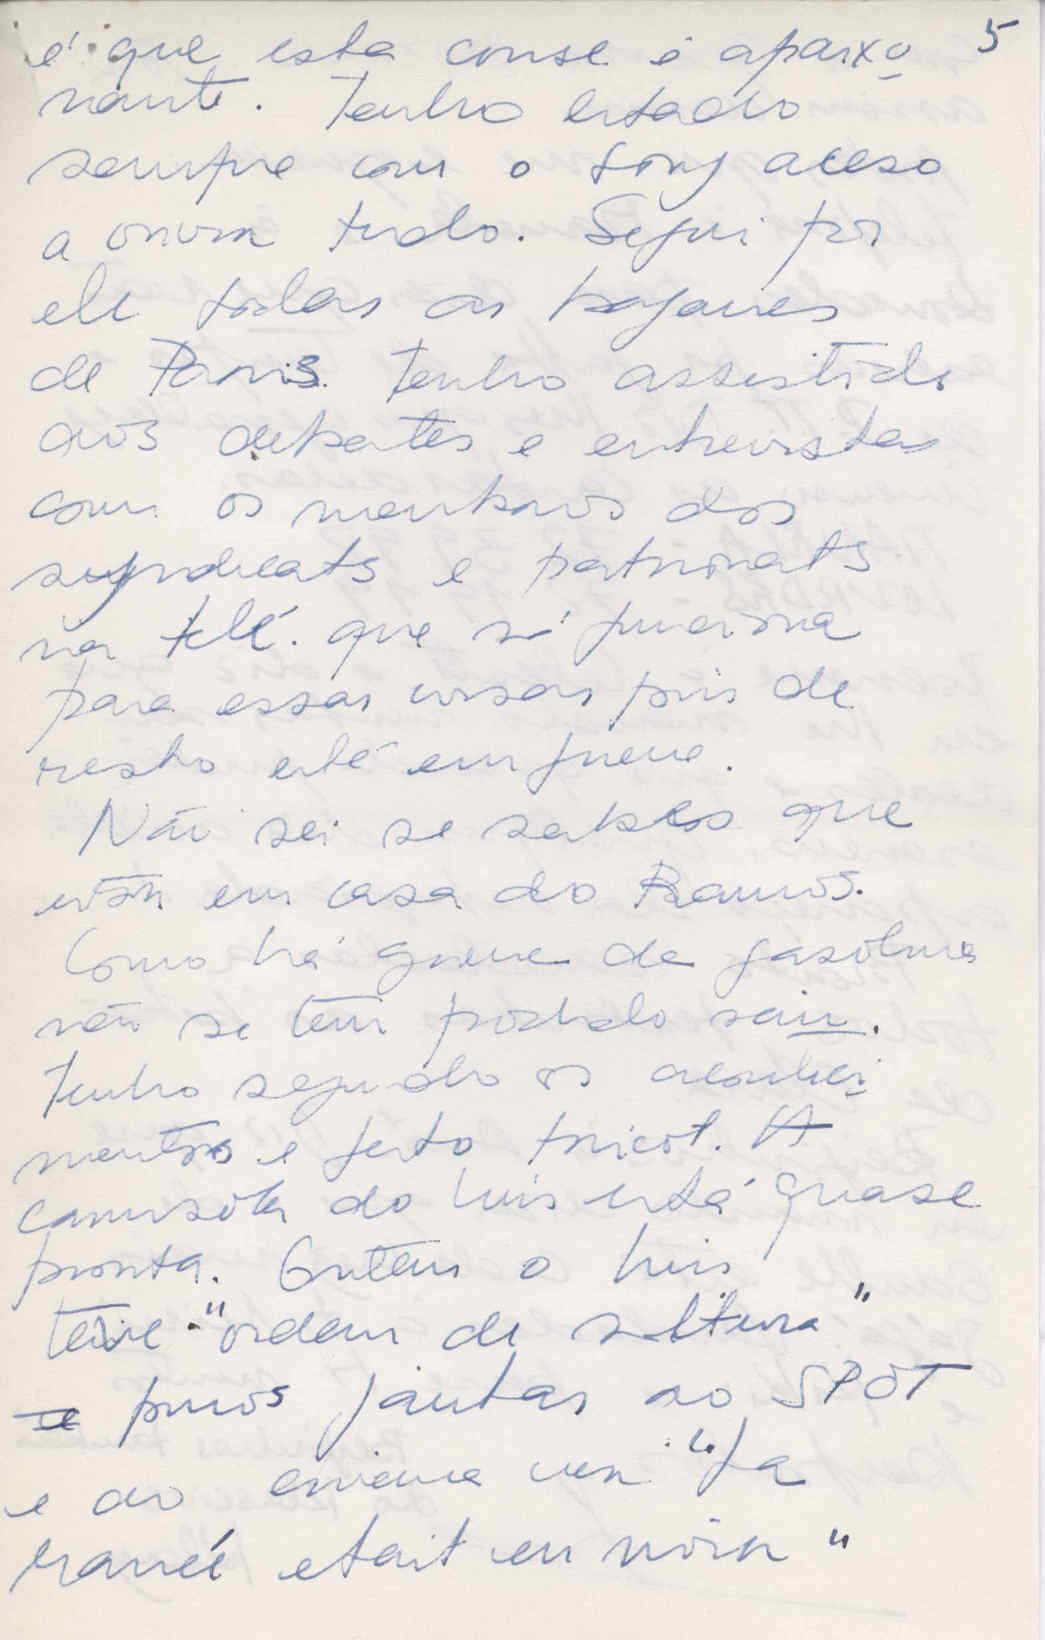 5
é que esta couse é apaixo
nante. Tenho estado
sempre com o sony aceso
a ouvir tudo. Segui por
ele todas as bagarres
de Paris. Tenho assistido
aos debates e entrevistas
com os membros dos
syndicats e patronats
na télé. que só funciona
para essas coisas pois de
resto está em greve.
Não sei se sabes que
estou em casa do Ramos.
Como há greve de gasolina
não se tem podido sair.
Tenho seguido os aconteci
mentos e feito tricot. A
camisola do Luis está quase
pronta. Ontem o Luis
teve "ordem de soltura"
e fomos jantar ao SPOT
e ao cinema ver "La
mariée etait en noir"